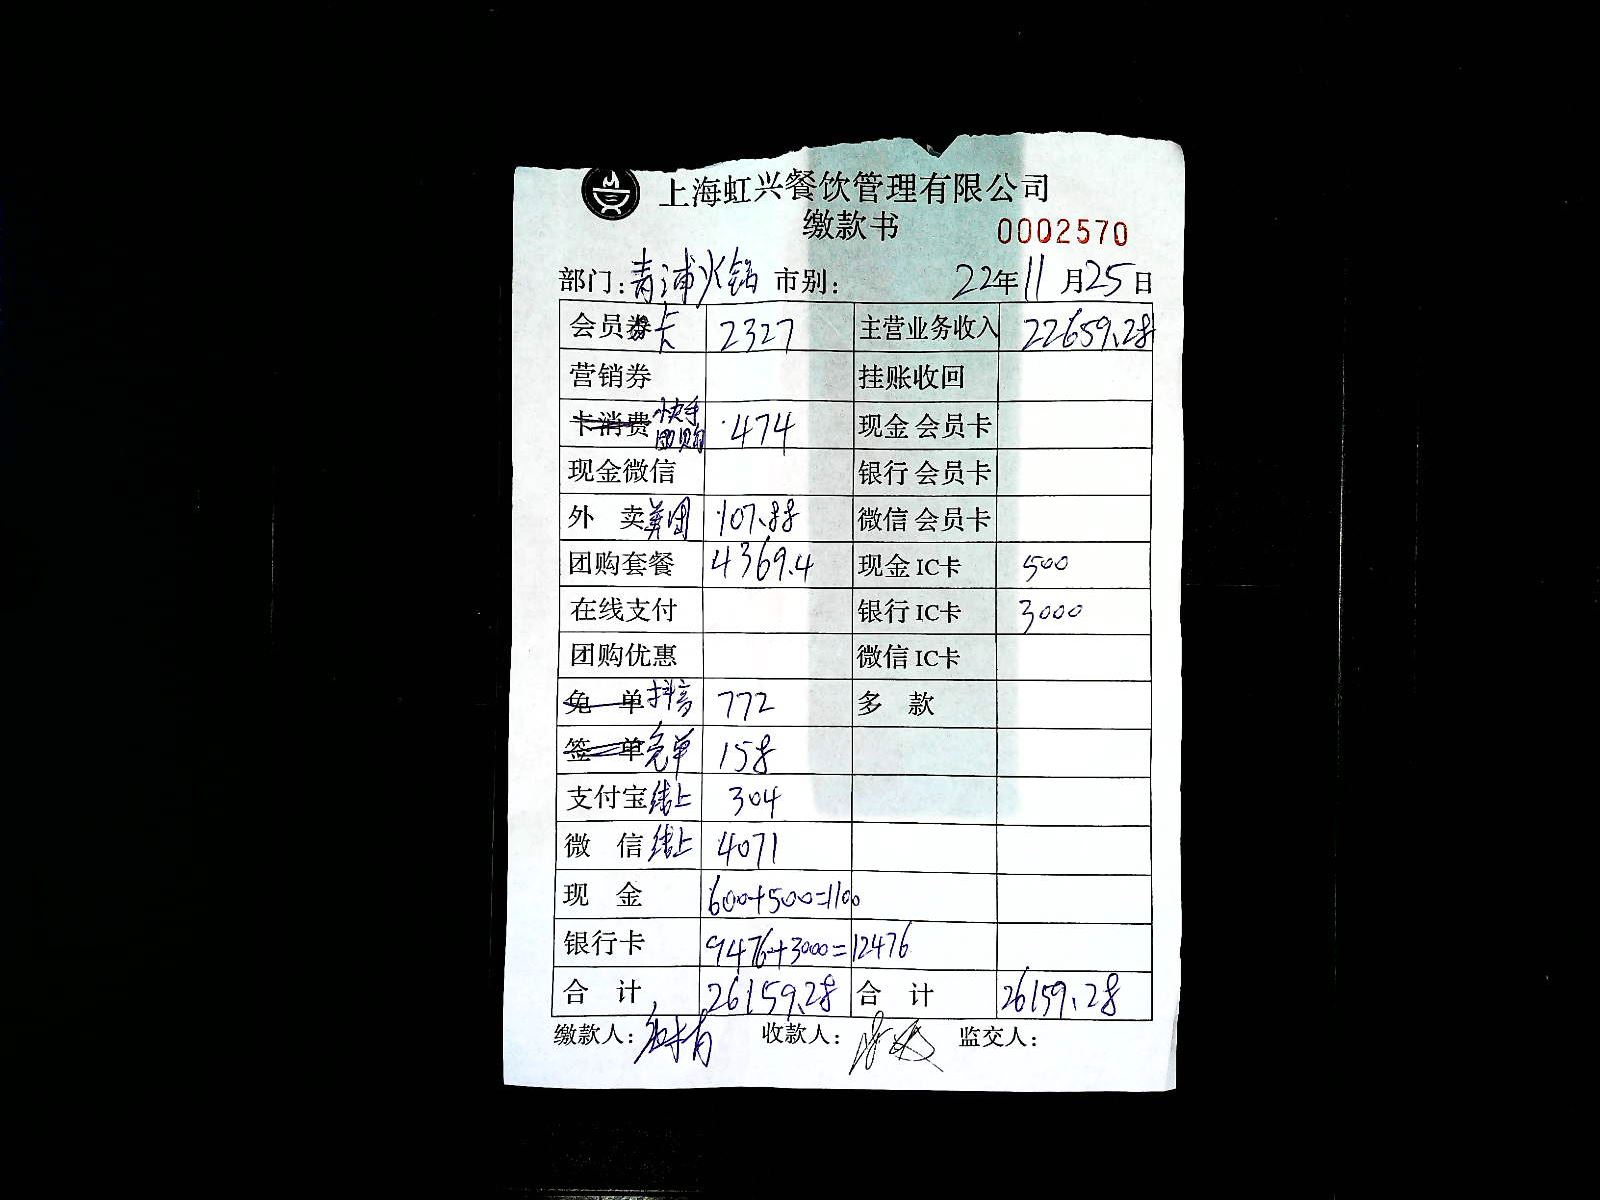 上海虹兴餐饮管理有限公司
缴款书 0002570
部门：青浦火锅 市别： 22年11月25日
会员券卡 2327 主营业务收入 22659.28
营销券 挂账收回
卡消费 快手团购 474 现金 会员卡
现金微信 银行 会员卡
外 卖 美团 107.88 微信 会员卡
团购套餐 4369.4 现金 IC卡 500
在线支付 银行 IC卡 3000
团购优惠 微信 IC卡
免 单 抖音 772 多 款
签 单 免单 158
支付宝线上 304
微 信 线上 4071
现 金 600+500=1100
银行卡 9476+3000=12476
合 计 26159.28 合 计 26159.28
缴款人： 收款人： 监交人：